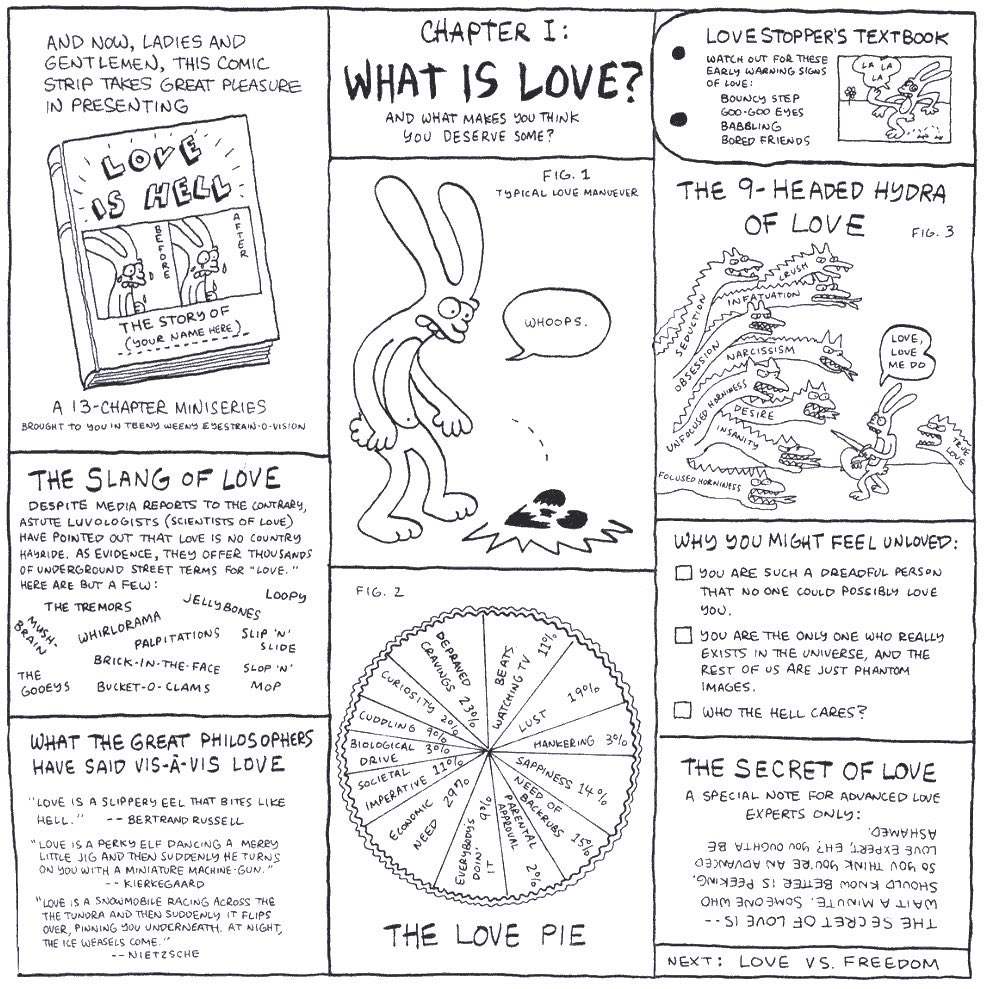 AND NOW, LADIES AND
GENTLEMEN, THIS COMIC
STRIP TAKES GREAT PLEASURE
IN PRESENTING
LOVE
IS HELL
BEFORE
AFTER
THE STORY OF
(YOUR NAME HERE)
A 13-CHAPTER MINISERIES
BROUGHT TO YOU IN TEENY WEENY EYESTRAIN-O-VISION
THE SLANG OF LOVE
DESPITE MEDIA REPORTS TO THE CONTRARY,
ASTUTE LUVOLOGISTS (SCIENTISTS OF LOVE)
HAVE POINTED OUT THAT LOVE IS NO COUNTRY
HAYRIDE. AS EVIDENCE, THEY OFFER THOUSANDS
OF UNDERGROUND STREET TERMS FOR "LOVE."
HERE ARE BUT A FEW:
THE TREMORS
JELLYBONES
LOOPY
MUSH-
BRAIN
WHIRLORAMA
PALPITATIONS
SLIP 'N'
SLIDE
BRICK-IN-THE-FACE
THE
GOOEYS
BUCKET-O-CLAMS
SLOP 'N'
MOP
WHAT THE GREAT PHILOSOPHERS
HAVE SAID VIS-À-VIS LOVE
"LOVE IS A SLIPPERY EEL THAT BITES LIKE
HELL." -- BERTRAND RUSSELL
"LOVE IS A PERKY ELF DANCING A MERRY
LITTLE JIG AND THEN SUDDENLY HE TURNS
ON YOU WITH A MINIATURE MACHINE-GUN."
-- KIERKEGAARD
"LOVE IS A SNOWMOBILE RACING ACROSS THE
THE TUNDRA AND THEN SUDDENLY IT FLIPS
OVER, PINNING YOU UNDERNEATH. AT NIGHT,
THE ICE WEASELS COME."
-- NIETZSCHE
CHAPTER I:
WHAT IS LOVE?
AND WHAT MAKES YOU THINK
YOU DESERVE SOME?
FIG. 1
TYPICAL LOVE MANUEVER
WHOOPS.
FIG. 2
BEATS
WATCHING TV 11%
LUST 19%
HANKERING 3%
SAPPINESS 14%
NEED OF
BACKRUBS 15%
PARENTAL
APPROVAL 2%
EVERYBODY'S
DOIN'
IT 9%
ECONOMIC
NEED 29%
SOCIETAL
IMPERATIVE 11%
BIOLOGICAL
DRIVE 3%
CUDDLING 9%
CURIOSITY 2%
DEPRAVED
CRAVINGS 23%
THE LOVE PIE
LOVESTOPPER'S TEXTBOOK
WATCH OUT FOR THESE
EARLY WARNING SIGNS
OF LOVE:
BOUNCY STEP
GOO-GOO EYES
BABBLING
BORED FRIENDS
LA LA
LA
THE 9-HEADED HYDRA
OF LOVE
FIG. 3
SEDUCTION
CRUSH
INFATUATION
OBSESSION
NARCISSISM
UNFOCUSED HORNINESS
DESIRE
INSANITY
FOCUSED HORNINESS
LOVE,
LOVE
ME DO
TRUE
LOVE
WHY YOU MIGHT FEEL UNLOVED:
YOU ARE SUCH A DREADFUL PERSON
THAT NO ONE COULD POSSIBLY LOVE
YOU.
YOU ARE THE ONLY ONE WHO REALLY
EXISTS IN THE UNIVERSE, AND THE
REST OF US ARE JUST PHANTOM
IMAGES.
WHO THE HELL CARES?
THE SECRET OF LOVE
A SPECIAL NOTE FOR ADVANCED LOVE
EXPERTS ONLY:
THE SECRET OF LOVE IS --
WAIT A MINUTE. SOMEONE WHO
SHOULD KNOW BETTER IS PEEKING.
SO YOU THINK YOU'RE AN ADVANCED
LOVE EXPERT, EH? YOU OUGHTA BE
ASHAMED.
NEXT: LOVE VS. FREEDOM